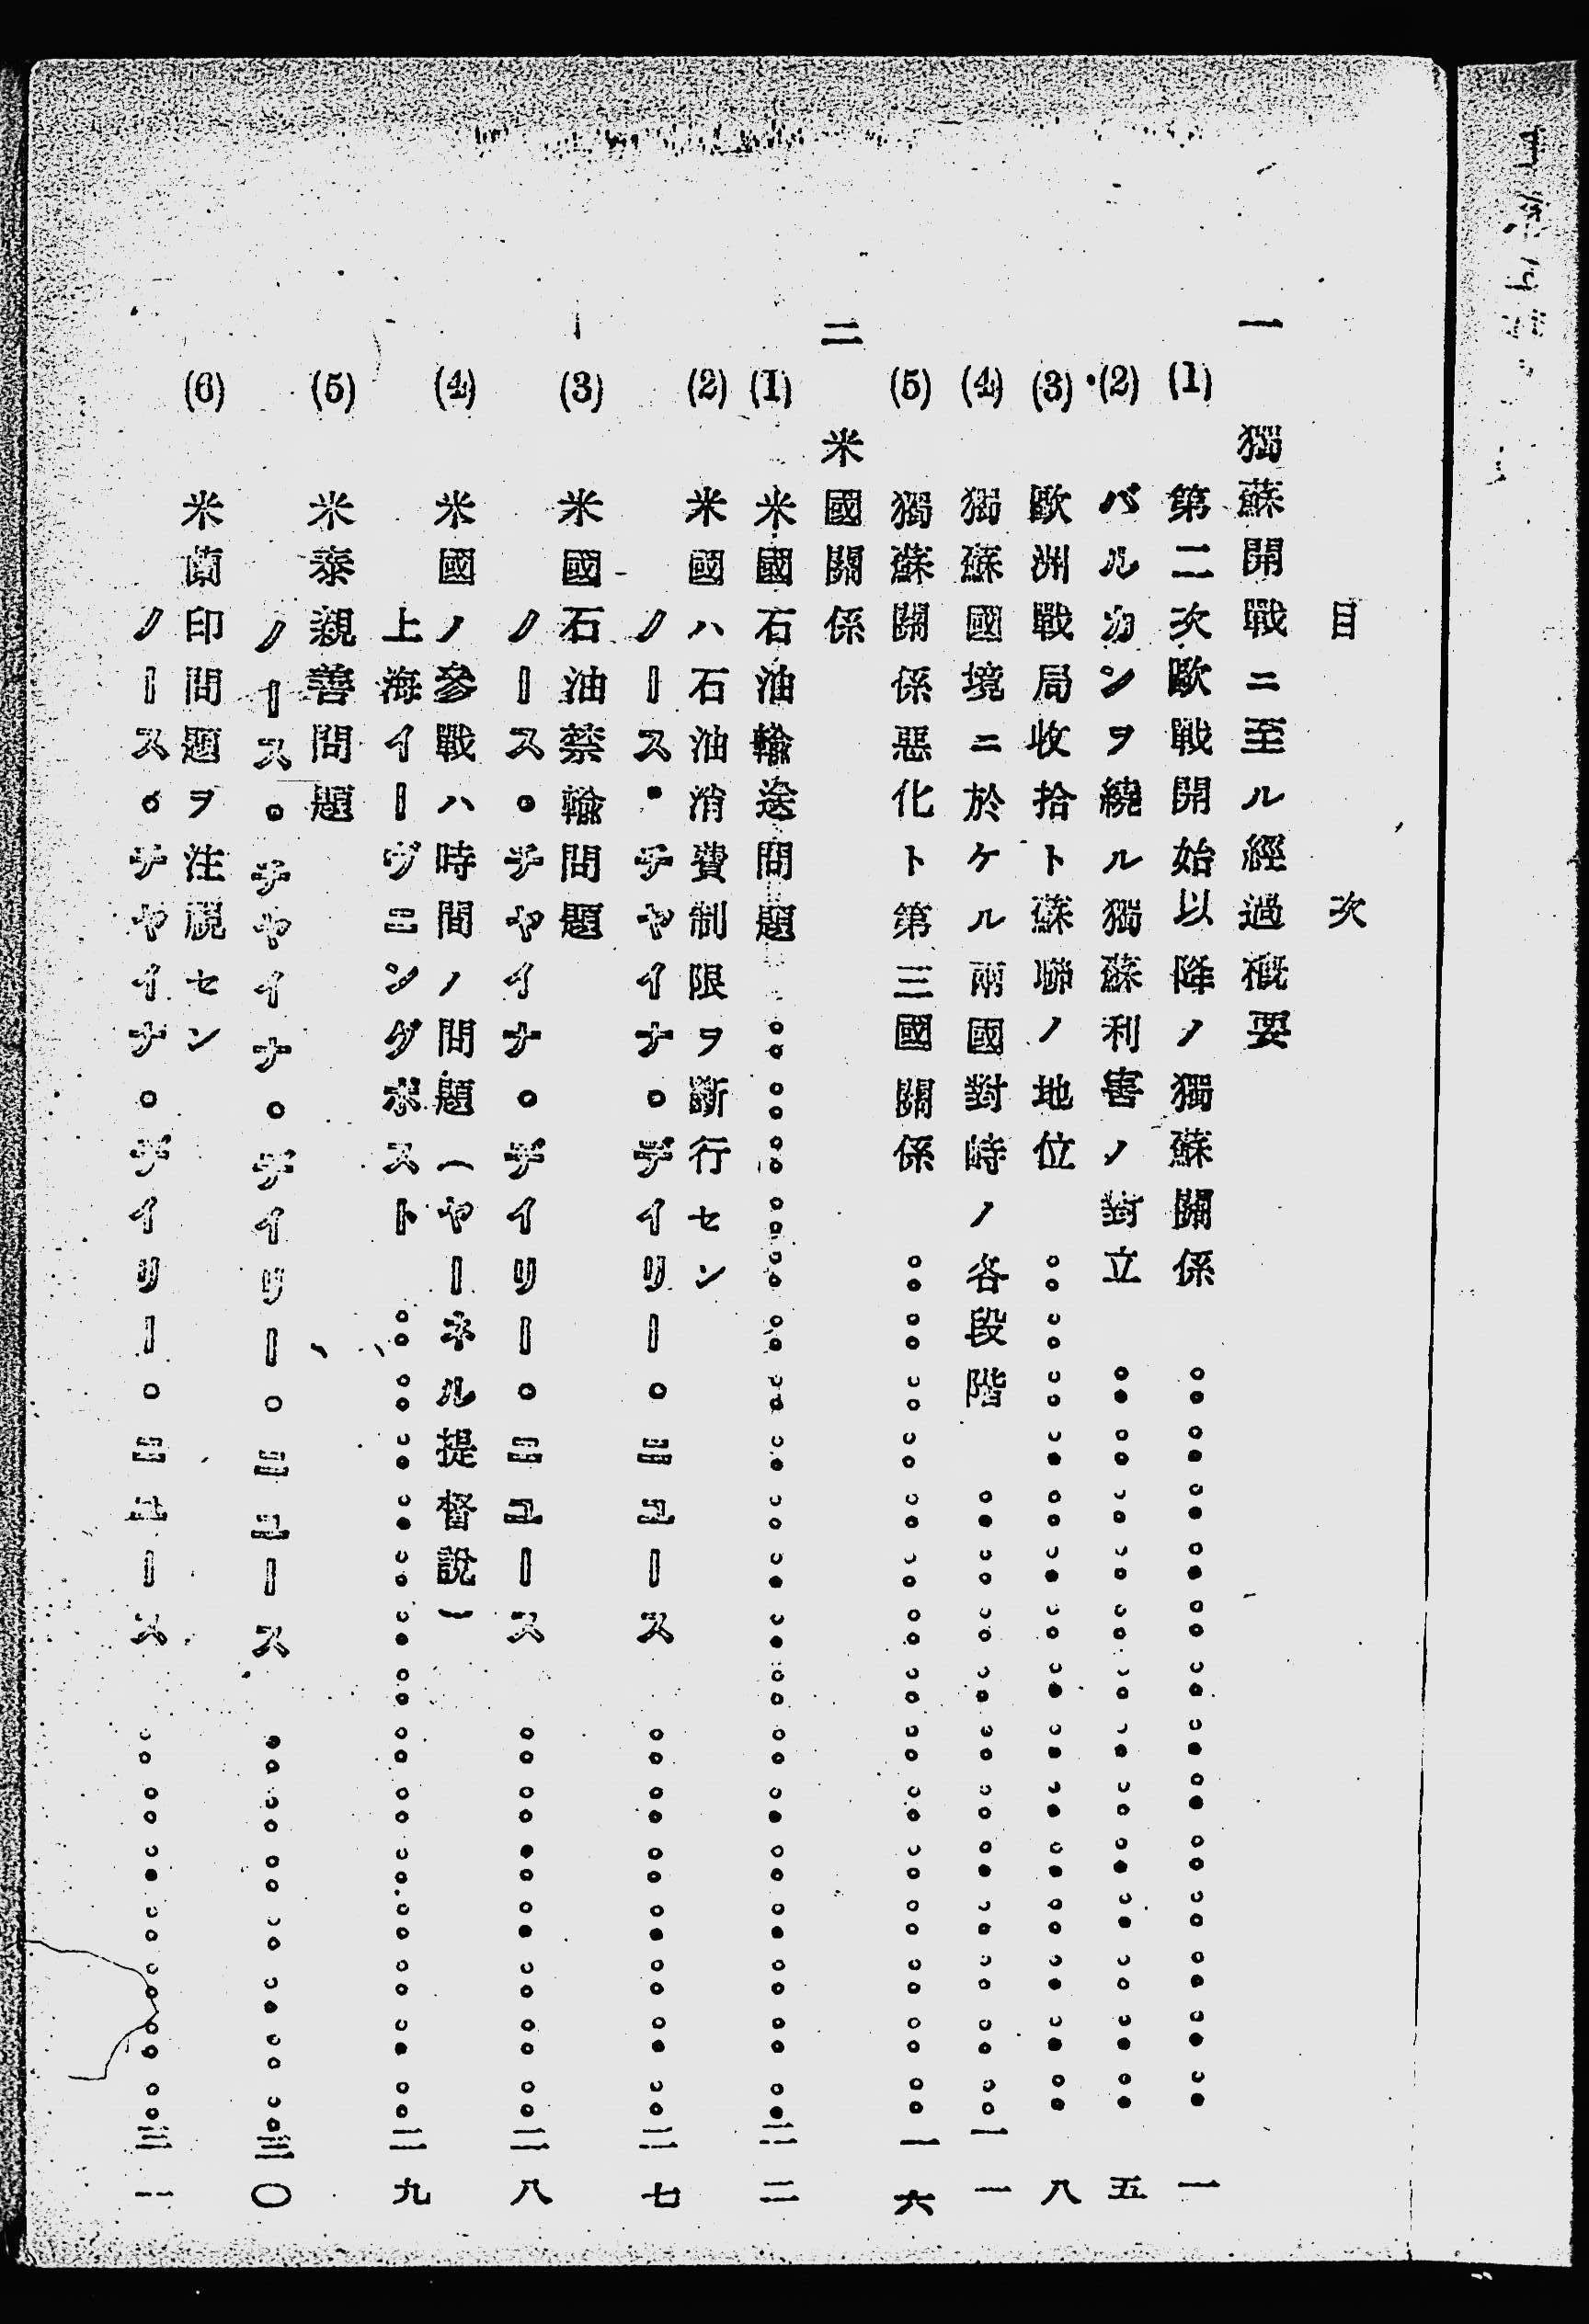 目次
一 獨蘇開戰ニ至ル經過概要
(1) 第二次歐戰開始以降ノ獨蘇關係 一
(2) バルカンヲ繞ル獨蘇利害ノ對立 五
(3) 歐洲戰局收拾ト蘇聯ノ地位 八
(4) 獨蘇國境ニ於ケル兩國對峙ノ各段階 一一
(5) 獨蘇關係惡化ト第三國關係 一六
二 米國關係
(1) 米國石油輸送問題 二二
(2) 米國ハ石油消費制限ヲ斷行セン
ノース。チヤイナ。デイリー。ニユース 二七
(3) 米國石油禁輸問題
ノース。チヤイナ。デイリー。ニユース 二八
(4) 米國ノ參戰ハ時間ノ問題(ヤーネル提督說)
上海イーヴニングポスト 二九
(5) 米泰親善問題
ノース。チヤイナ。デイリー。ニユース 三〇
(6) 米蘭印問題ヲ注視セン
ノース。チヤイナ。デイリー。ニユース 三一